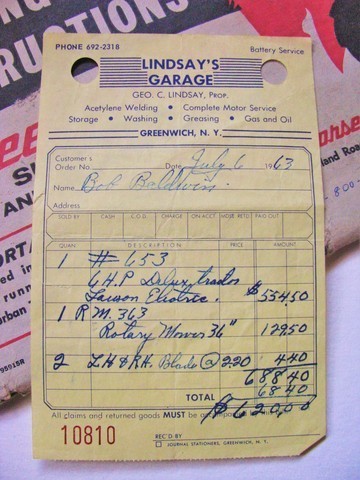 PHONE 692-2318 Battery Service
LINDSAY'S
GARAGE
GEO. C. LINDSAY, PROP.
Acetylene Welding • Complete Motor Service
Storage • Washing • Greasing • Gas and Oil
GREENWICH, N. Y.
Customer's
Order No. Date July 6 1963
Name Bob Baldwin.
Address
SOLD BY CASH C.O.D. CHARGE ON ACCT. MDSE. RETD. PAID OUT
QUAN. DESCRIPTION PRICE AMOUNT
1 # 653
6 H.P Delux tractor
Lauson Electric. $ 554.50
1 R.M. 363
Rotary Mower 36" 129.50
2 LH & RH. Blade @ 2.20 4.40
688.40
TOTAL 68.40
$620.00
All claims and returned goods MUST be
10810
REC'D BY
JOURNAL STATIONERS, GREENWICH, N. Y.